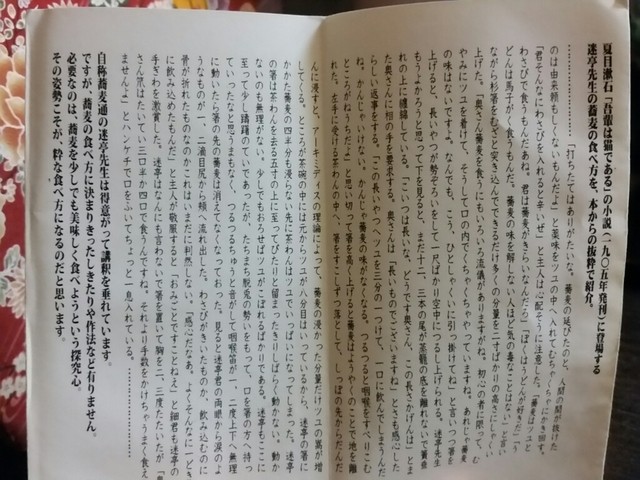 夏目漱石「吾輩は猫である」の小説(一九〇五年発刊)に登場する
迷亭先生の蕎麦の食べ方を、本からの抜粋で紹介。
「打ちたてはありがたいな。蕎麦の延びたのと、人間の間が抜けた
のは由来頼もしくないもんだよ」と薬味をツユの中へ入れてむちゃくちゃにかき回す。
「君そんなにわさびを入れると辛いぜ」と主人は心配そうに注意した。「蕎麦はツユと
わさびで食うもんだあね。君は蕎麦がきらいなんだろ」「ぼくはうどんが好きだ」「う
どんは馬子が食うもんだ。蕎麦の味を解しない人ほど気の毒なことはない」と言い
ながら杉箸をむざと突き込んでできるだけ多くの分量を二寸ばかりの高さにしゃくい
上げた。「奥さん蕎麦を食うにもいろいろ流儀がありますがね。初心の者に限って、む
やみにツユを着けて、そうして口の内でくちゃくちゃやっていますね。あれじゃ蕎麦
の味はないですよ。なんでも、こう、ひとしゃくいに引っ掛けてね」と言いつつ箸を
上げると、長いやつが勢ぞろいをして一尺ばかり空中につるし上げられる。迷亭先生
もうよかろうと思って下を見ると、まだ十二、三本の尾が蒸籠の底を離れないで簀垂
れの上に纏綿している。「こいつは長いな、どうです奥さん、この長さかげんは」とま
た奥さんに相の手を要求する。奥さんは「長いものでございますね」とさも感心した
らしい返事をする。「この長いやつへツユを三分の一つけて、一口に飲んでしまうんだ
ね。かんじゃいけない。かんじゃ蕎麦の味がなくなる。つるつると咽喉をすべりこむ
ところがねうちだよ」と思い切って箸を高く上げると蕎麦はようやくのことで地を離
れた。左手に受ける茶わんの中へ、箸を少しずつ落として、しっぽの先からだんだ
んに浸すと、アーキミディスの理論によって、蕎麦の浸かった分量だけツユの嵩が増
してくる。ところが茶碗の中には元からツユが八分目はいっているから、迷亭の箸に
かかった蕎麦の四半分も浸らない先に茶わんはツユでいっぱいになってしまった。迷亭
の箸は茶わんを去る五寸の上に至ってぴたりと留まったきりしばらく動かない。動か
ないのも無理がない。少しでもおろせばツユがこぼれるばかりである。迷亭もここに
至って少し躊躇のていであったが、たちまち脱兎の勢いをもって、口を箸の方へ持っ
ていったなと思うまもなく、つるつるちゅうと音がして咽喉笛が一、二度上下へ無理
に動いたら箸の先の蕎麦は消えてなくなっておった。見ると迷亭君の両眼から涙のよ
うなものが一、二滴尻から頬へ流れ出した。わさびがきいたものか、飲み込むのに
骨が折れたものかこれはいまだに判然しない。「感心だなあ。よくそんなに一どき
に飲み込めたもんだ」と主人が敬服すると「おみごとですことねえ」と細君も迷亭の
手ぎわを激賞した。迷亭はなんにも言わないで箸を置いて胸を二、三度たたいたが「奥
さん笊はたいてい三口半か四口で食うんですね。それより手数をかけちゃうまく食え
ませんよ」とハンケチで口をふいてちょっと一息入れている。
自称蕎麦通の迷亭先生は得意がって講釈を垂れています。
ですが、蕎麦の食べ方に決まりきったしきたりや作法など有りません。
必要なのは、蕎麦を少しでも美味しく食べようという探究心。
その姿勢こそが、粋な食べ方になるのだと思います。